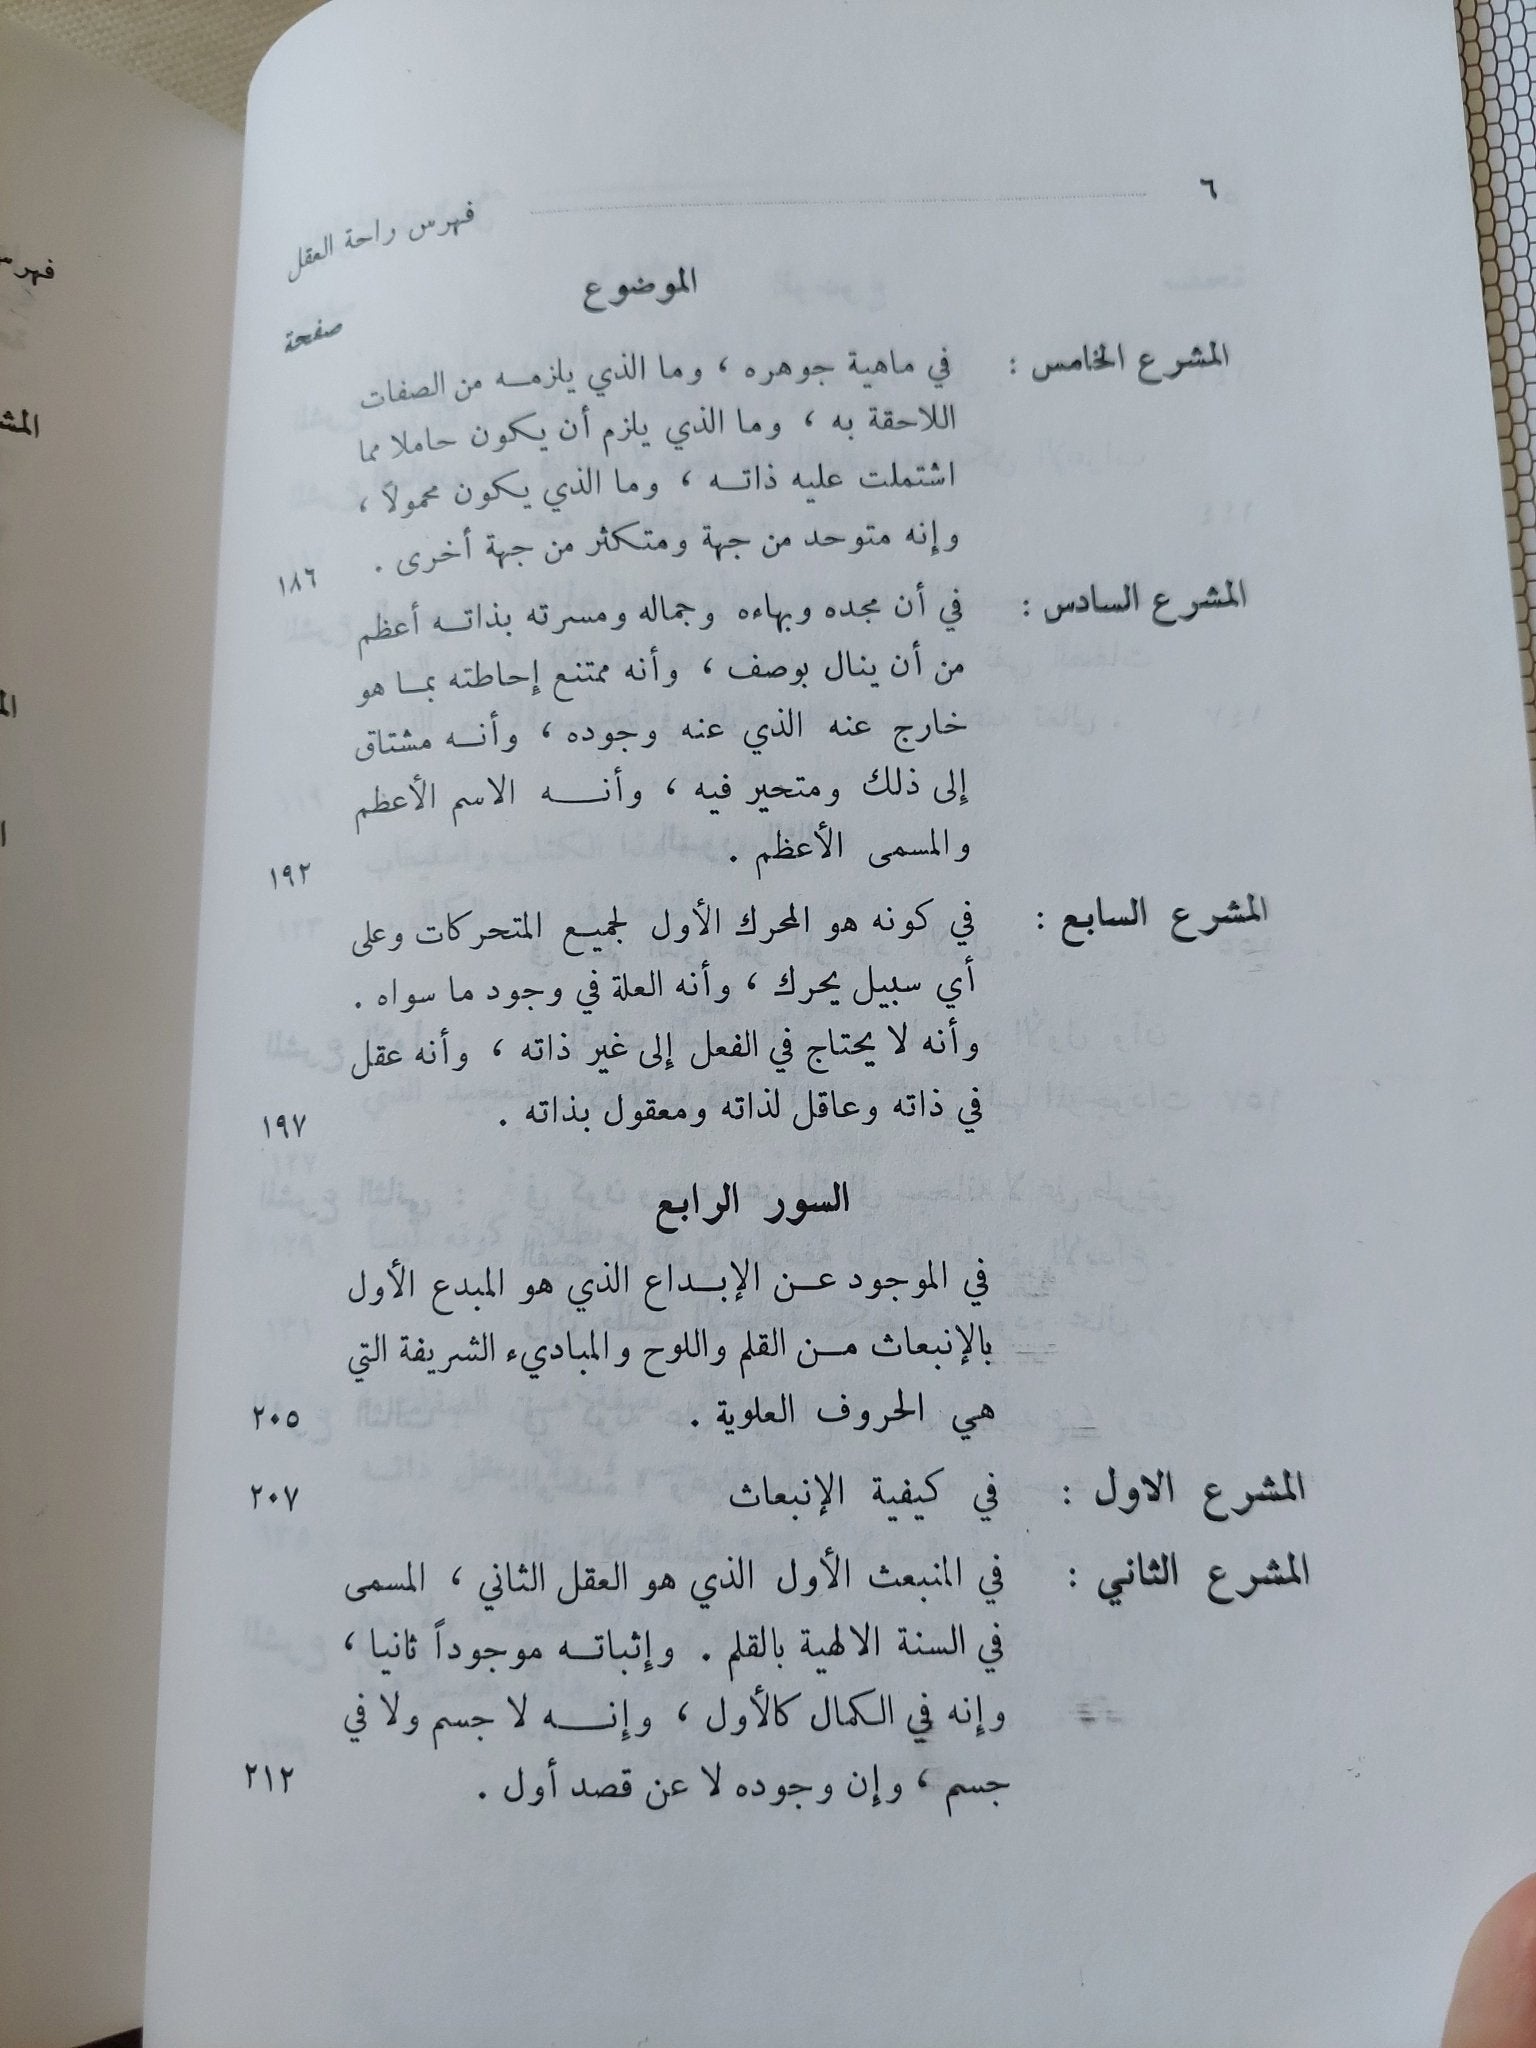 ٦ فهرس راحة العقل
الموضوع
صفحة
المشرع الخامس : في ماهية جوهره ، وما الذي يلزمه من الصفات
اللاحقة به ، وما الذي يلزم أن يكون حاملا مما
اشتملت عليه ذاته ، وما الذي يكون محمولاً ،
وإنه متوحد من جهة ومتكثر من جهة أخرى . ١٨٦
المشرع السادس : في أن مجده وبهاءه وجماله ومسرته بذاته أعظم
من أن ينال بوصف ، وأنه ممتنع إحاطته بما هو
خارج عنه الذي عنه وجوده ، وأنه مشتاق
إلى ذلك ومتحير فيه ، وأنه الاسم الأعظم
والمسمى الأعظم . ١٩٢
المشرع السابع : في كونه هو المحرك الأول لجميع المتحركات وعلى
أي سبيل يحرك ، وأنه العلة في وجود ما سواه .
وأنه لا يحتاج في الفعل إلى غير ذاته ، وأنه عقل
في ذاته وعاقل لذاته ومعقول بذاته . ١٩٧
السور الرابع
في الموجود عن الإبداع الذي هو المبدع الأول
بالإنبعاث من القلم واللوح والمباديء الشريفة التي
هي الحروف العلوية . ٢٠٥
المشرع الاول : في كيفية الإنبعاث ٢٠٧
المشرع الثاني : في المنبعث الأول الذي هو العقل الثاني ، المسمى
في السنة الالهية بالقلم . وإثباته موجوداً ثانيا ،
وإنه في الكمال كالأول ، وإنه لا جسم ولا في
جسم ، وإن وجوده لا عن قصد أول . ٢١٢